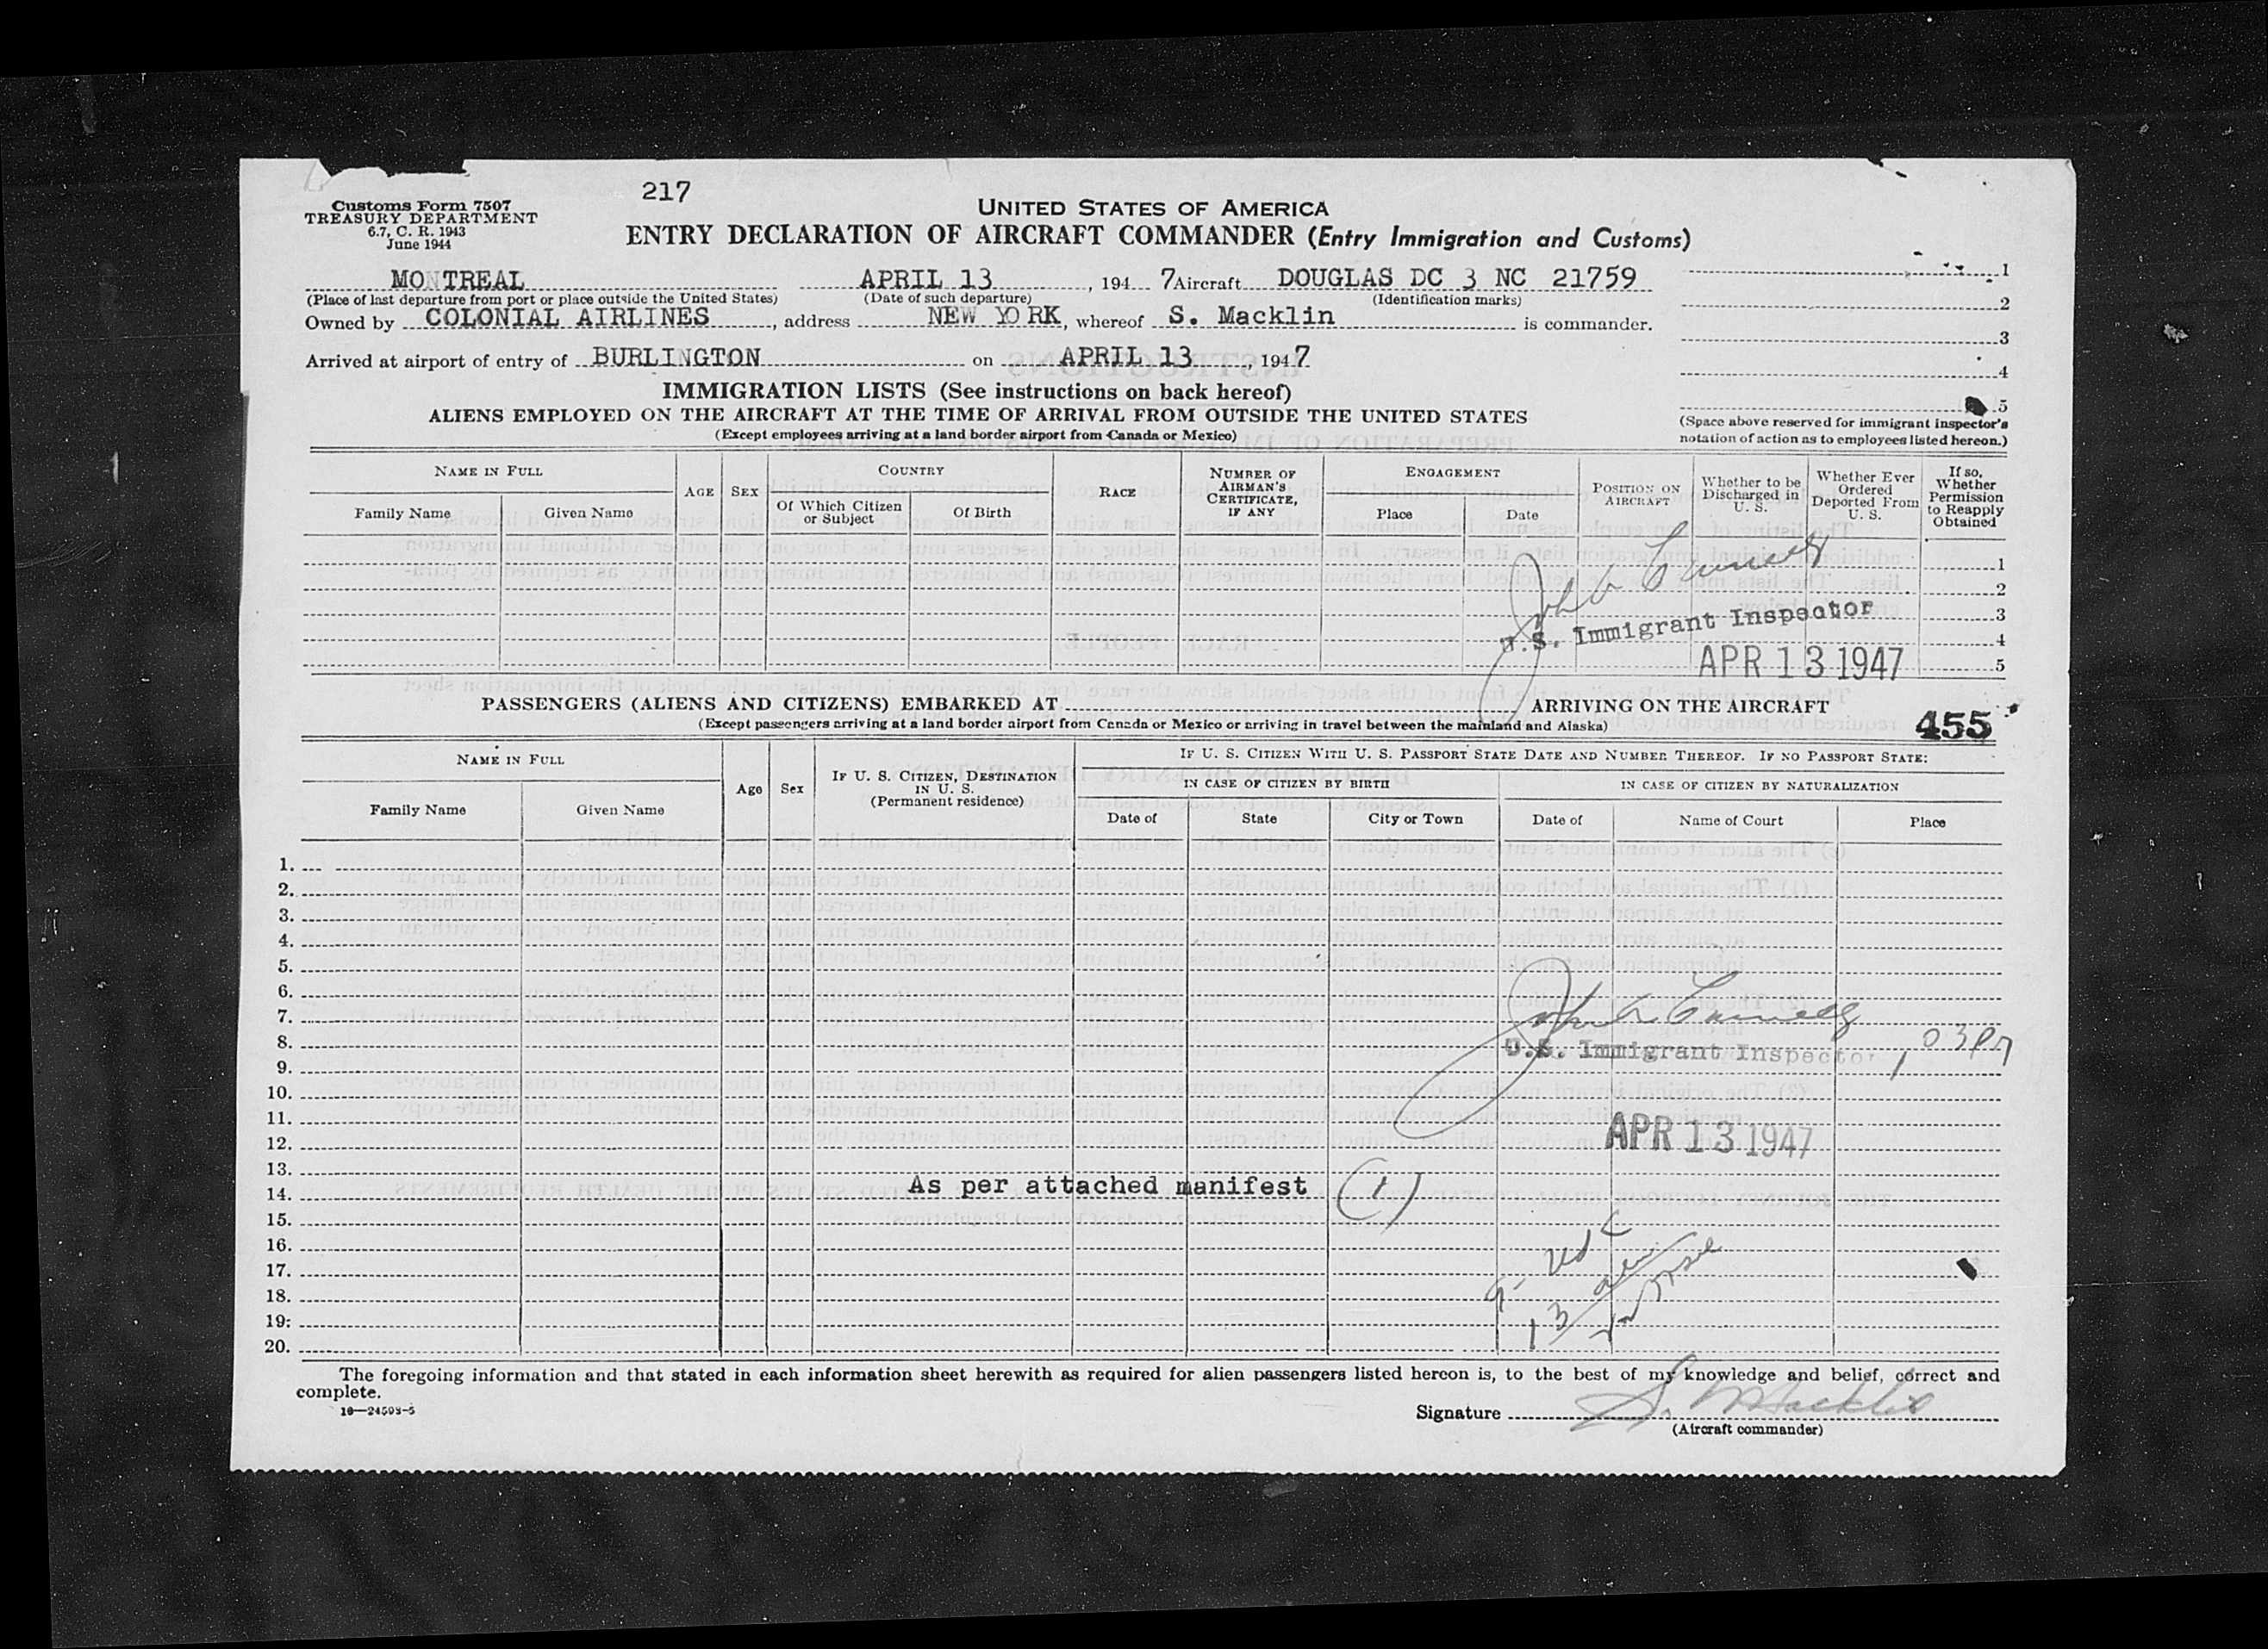 217
Customs Form 7507
TREASURY DEPARTMENT
6.7, C. R. 1943
June 1944
UNITED STATES OF AMERICA
ENTRY DECLARATION OF AIRCRAFT COMMANDER (Entry Immigration and Customs)
MONTREAL APRIL 13, 1947 Aircraft DOUGLAS DC 3 NC 21759
(Place of last departure from port or place outside the United States) (Date of such departure) (Identification marks)
Owned by COLONIAL AIRLINES, address NEW YORK, whereof S. Macklin is commander.
Arrived at airport of entry of BURLINGTON on APRIL 13, 1947
1
2
3
4
5
(Space above reserved for immigrant inspector's notation of action as to employees listed hereon.)
IMMIGRATION LISTS (See instructions on back hereof)
ALIENS EMPLOYED ON THE AIRCRAFT AT THE TIME OF ARRIVAL FROM OUTSIDE THE UNITED STATES
(Except employees arriving at a land border airport from Canada or Mexico)
NAME IN FULL
Family Name
Given Name
AGE
SEX
COUNTRY
Of Which Citizen or Subject
Of Birth
RACE
NUMBER OF AIRMAN'S CERTIFICATE, IF ANY
ENGAGEMENT
Place
Date
POSITION ON AIRCRAFT
Whether to be Discharged in U. S.
Whether Ever Ordered Deported From U. S.
If so, Whether Permission to Reapply Obtained
1
2
3
4
5
John
U.S. Immigrant Inspector
APR 13 1947
PASSENGERS (ALIENS AND CITIZENS) EMBARKED AT ARRIVING ON THE AIRCRAFT
(Except passengers arriving at a land border airport from Canada or Mexico or arriving in travel between the mainland and Alaska)
455
NAME IN FULL
Family Name
Given Name
Age
Sex
IF U. S. CITIZEN, DESTINATION IN U. S.
(Permanent residence)
IF U. S. CITIZEN WITH U. S. PASSPORT STATE DATE AND NUMBER THEREOF. IF NO PASSPORT STATE:
IN CASE OF CITIZEN BY BIRTH
Date of
State
City or Town
IN CASE OF CITIZEN BY NATURALIZATION
Date of
Name of Court
Place
1.
2.
3.
4.
5.
6.
7.
8.
9.
10.
11.
12.
13.
14.
15.
16.
17.
18.
19.
20.
John
U.S. Immigrant Inspector
APR 13 1947
As per attached manifest (1)
9-
13
The foregoing information and that stated in each information sheet herewith as required for alien passengers listed hereon is, to the best of my knowledge and belief, correct and
complete.
16—24593-5
Signature S. Macklin
(Aircraft commander)